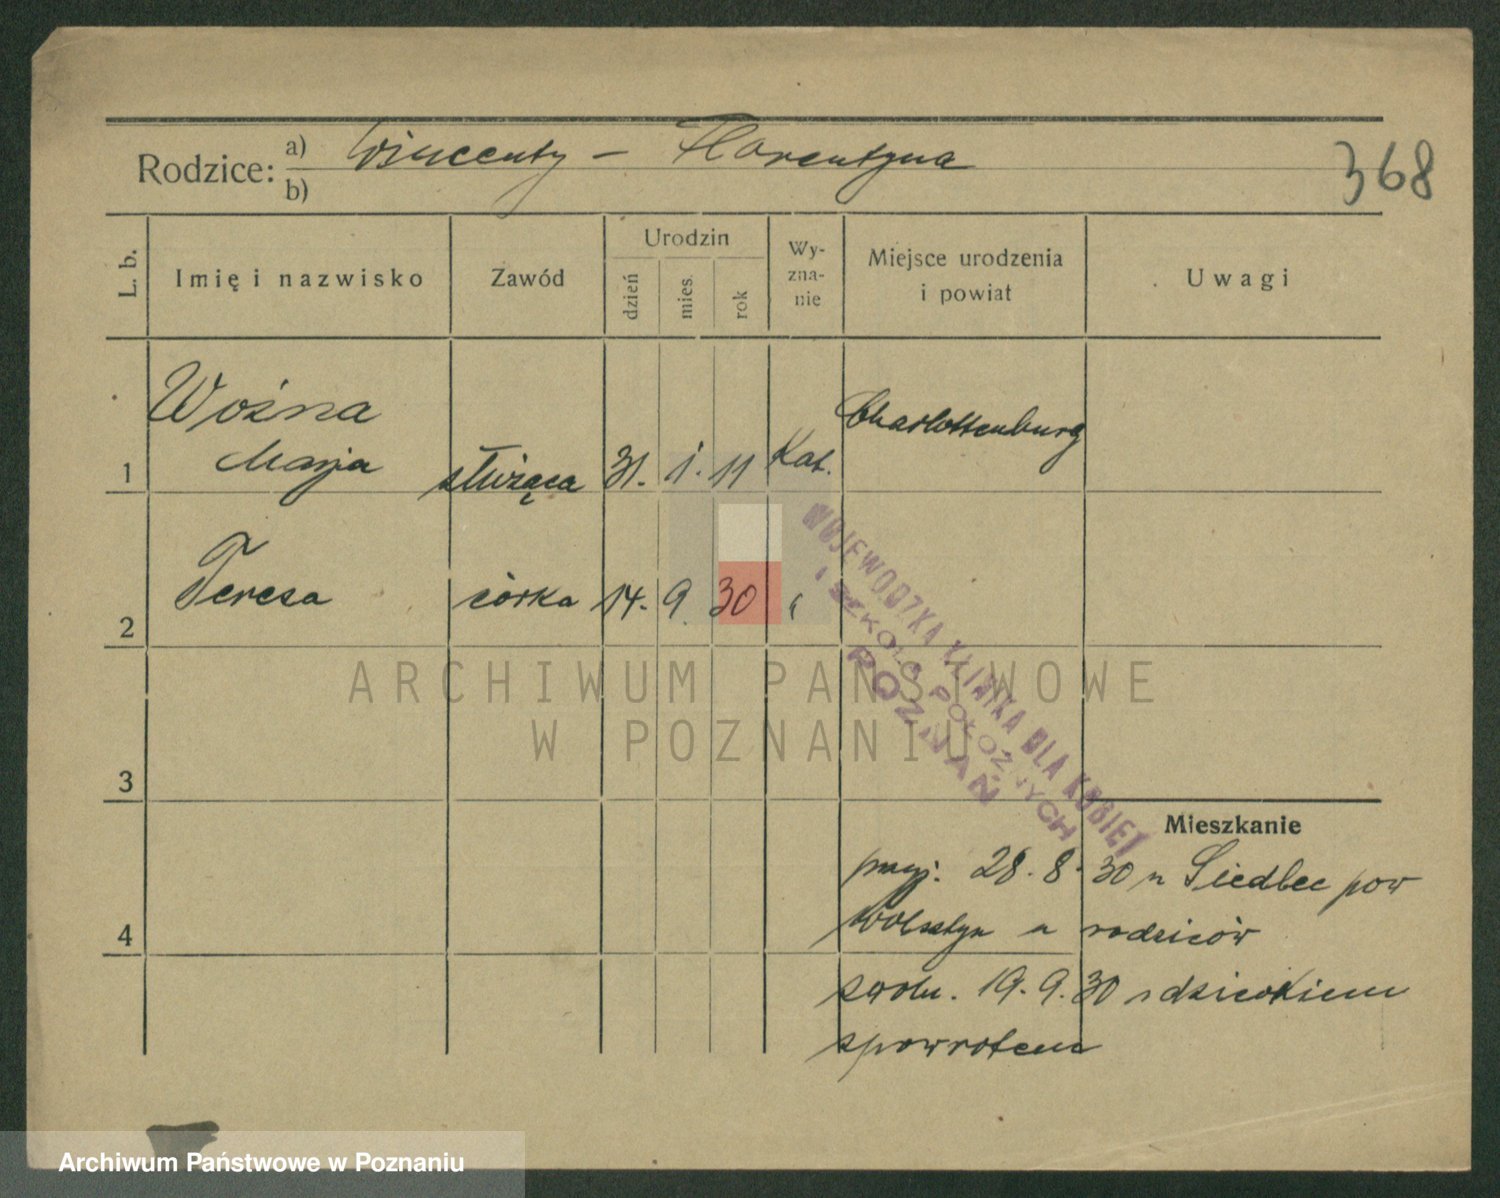 Rodzice: a) Wincenty – Florentyna
b)
368
L. b. Imię i nazwisko Zawód Urodzin dzień mies. rok Wy-zna-nie Miejsce urodzenia i powiat Uwagi
Woźna
Marja
1 służąca 31. 1. 11 Kat. Charlottenburg
2 Teresa córka 14. 9. 30 "
WOJEWÓDZKA KLINIKA DLA KOBIET
I SZKOŁA POŁOŻNYCH
POZNAŃ
ARCHIWUM PAŃSTWOWE
W POZNANIU
3
Mieszkanie
przyj. 28.8.30 z Siedlec pow
4 Wolsztyn u rodziców
zwoln. 19.9.30 z dzieckiem
spowrotem
Archiwum Państwowe w Poznaniu